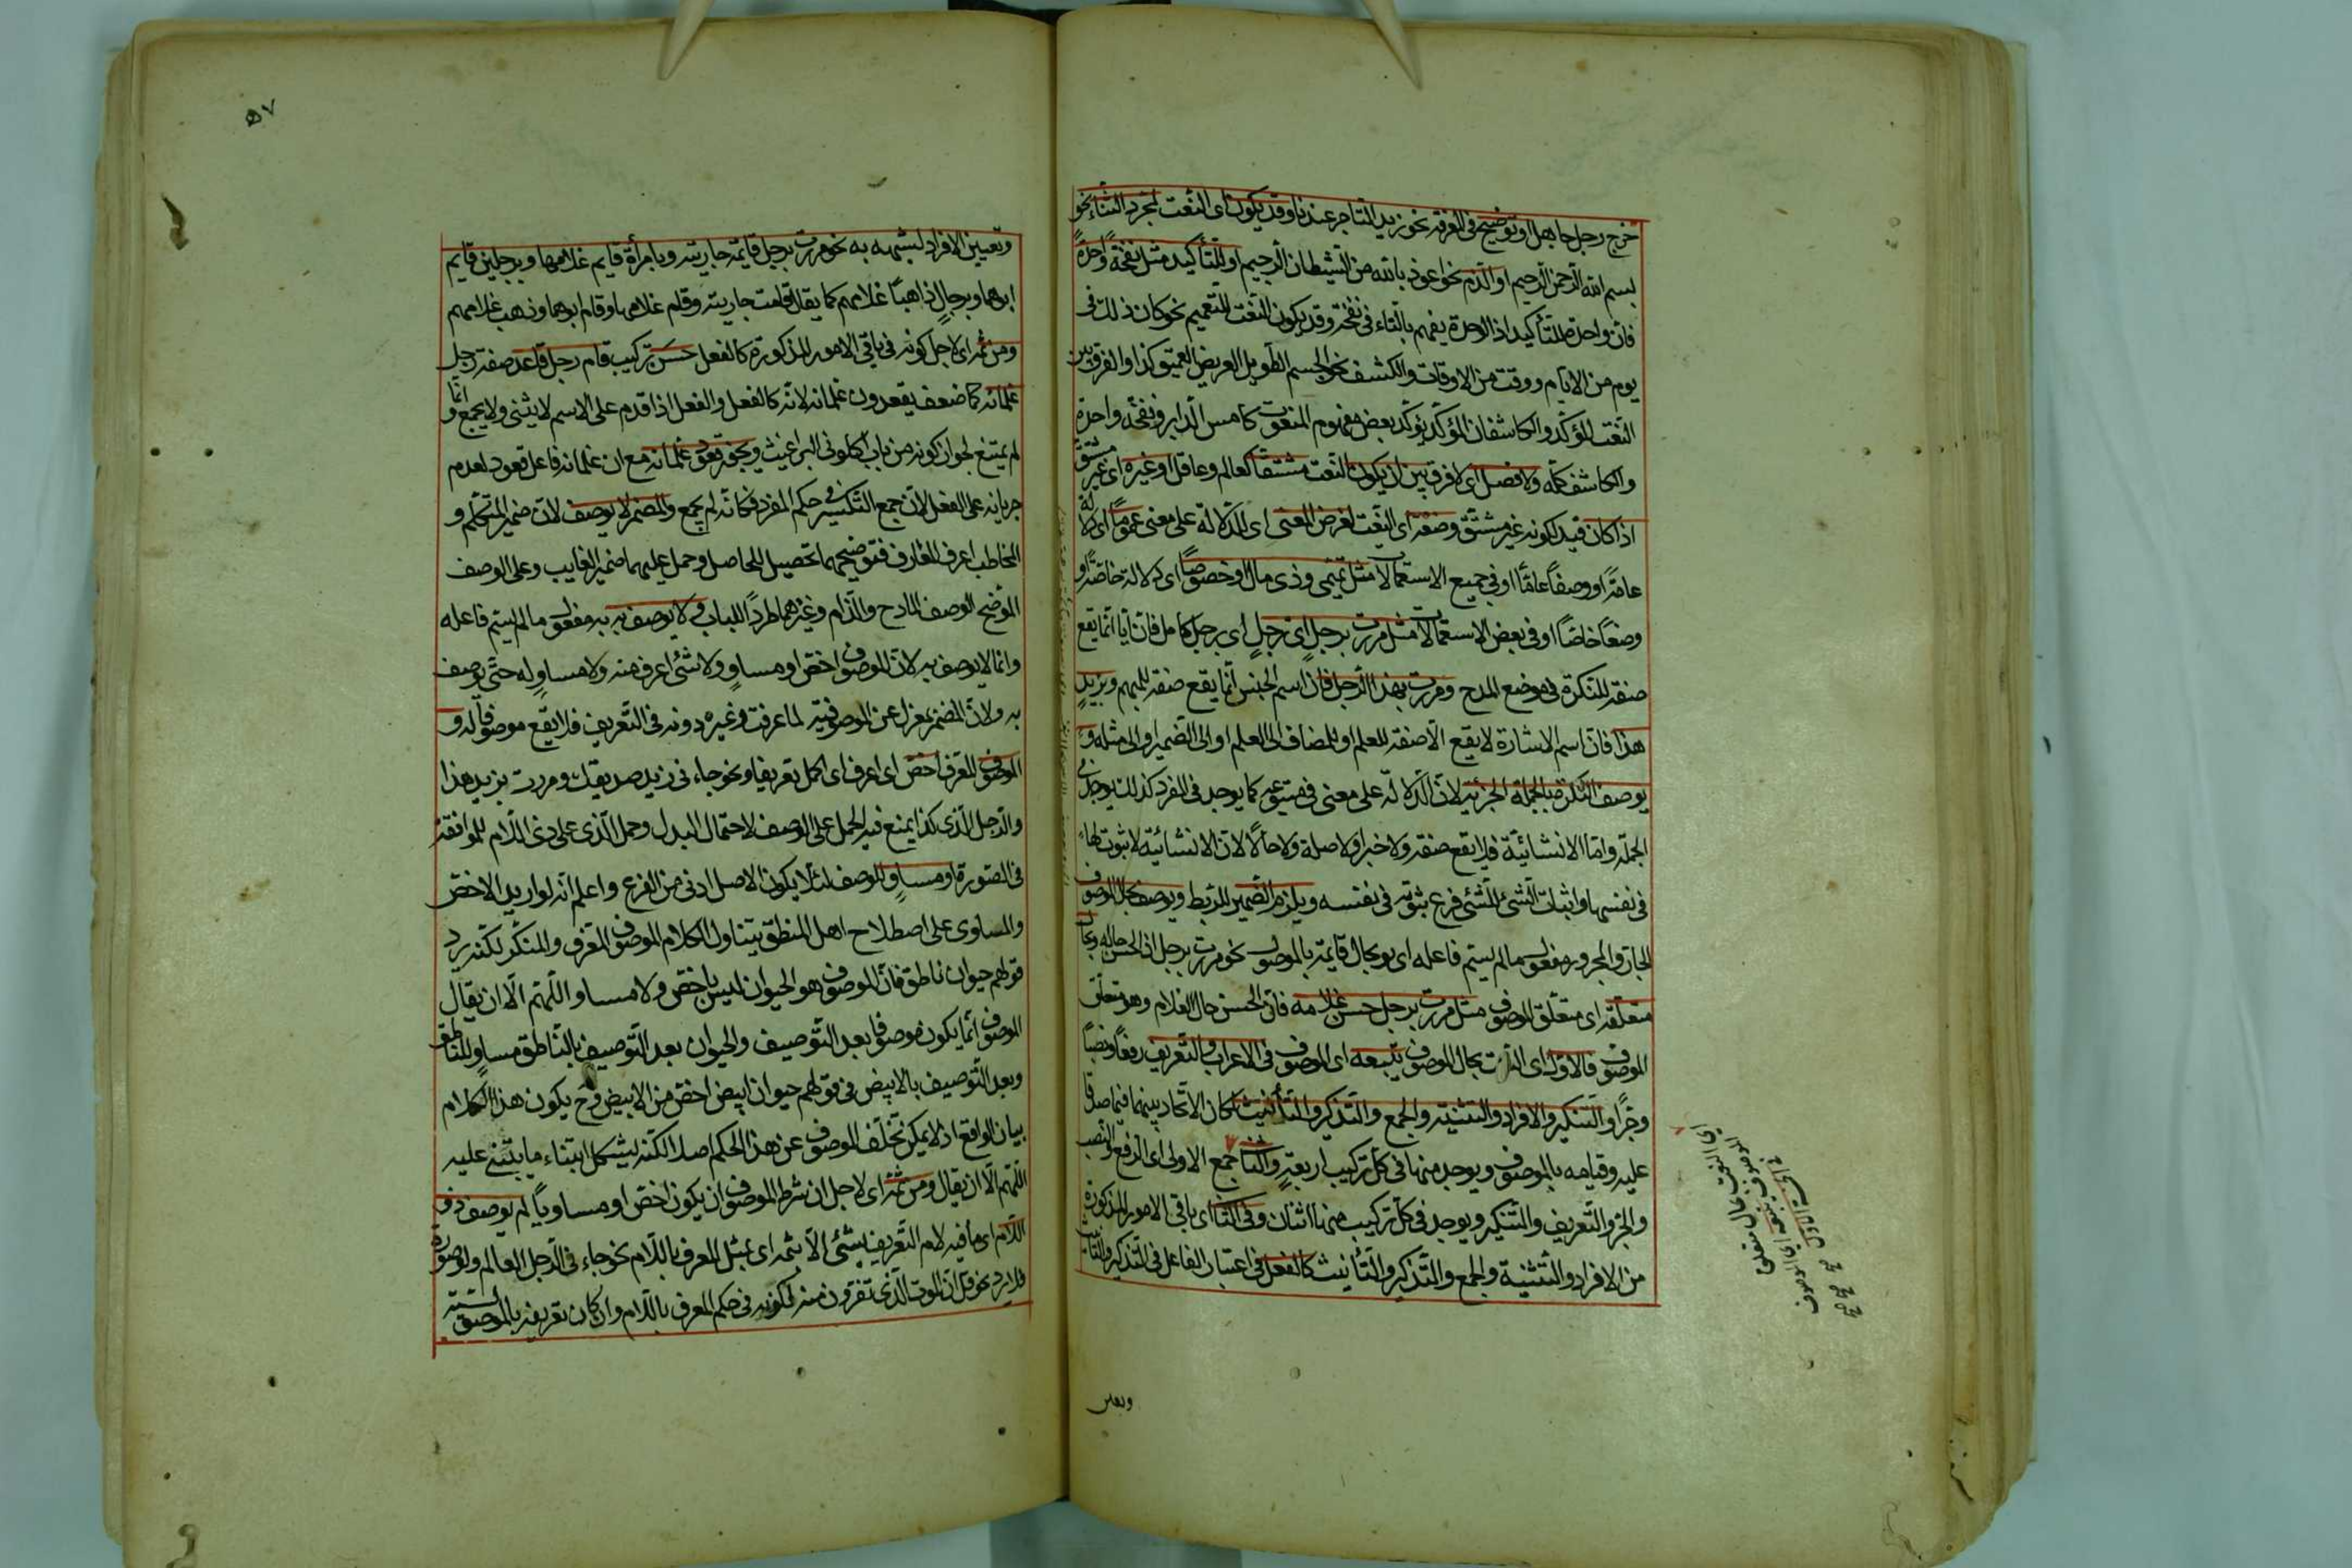 خرج رجل جاهل او توضيح فى المعرفة نحو زيد التاجر عندنا وقد يكون اى النعت لمجرد الثناء نحو
بسم الله الرحمن الرحيم او الذم نحو اعوذ بالله من الشيطان الرجيم او للتأكيد مثل نفخة واحدة
فان واحدة للتأكيد اذ الوحدة يفهم بالتاء فى نفخة وقد يكون النعت للتعميم نحو كان ذلك فى
يوم من الايام ووقت من الاوقات والكشف نحو الجسم الطويل العريض العميق كذا والفرق بين
النعت المؤكد والكاشف ان المؤكد يؤكد بعض مفهوم المنعوت كامس الدابر ونفخة واحدة
والكاشف كله ولا فصل اى لا فرق بين ان يكون النعت مشتقا كعالم وعاقل او غيره اى غير مشتق
اذا كان قيد لكونه غير مشتق وضعه اى النعت لغرض المعنى اى الدلالة على معنى عموما اى دلالة
عامة او وصفا عاما او فى جميع الاستعمالات مثل تميمى وذى مال او خصوصا اى دلالة خاصة او
وصفا خاصا او فى بعض الاستعمالات مثل مررت برجل اى رجل اى برجل كامل فان ايا انما يقع
صفة للنكرة فى موضع المدح ومررت بهذا الرجل فان اسم الجنس انما يقع صفة للمبهم وبزيد
هذا فان اسم الاشارة لا يقع الا صفة للعلم او للمضاف الى العلم او الى الضمير او الى مثله و
يوصف النكرة بالجملة الخبرية لان الدلالة على معنى فى متبوعه كما يوجد فى المفرد كذلك يوجد فى
الجملة واما الانشائية فلا يقع صفة ولا خبرا ولا صلة ولا حالا لان الانشائية لا ثبوت لها
فى نفسها واثبات الشئ للشئ فرع ثبوته فى نفسه ويلزم الضمير للربط ويوصف بحال الموصوف
الجار والمجرور مفعول ما لم يسم فاعله اى بحال قايمة بالموصوف نحو مررت برجل اذ الحسن حاله وبحال
متعلقه اى متعلق الموصوف مثل مررت برجل حسن غلامه فان الحسن حال الغلام وهو متعلق
الموصوف فالاول اى النعت بحال الموصوف يتبعه اى الموصوف فى الاعراب والتعريف رفعا ونصبا
وجرا والتنكير والافراد والتثنية والجمع والتذكير والتأنيث لمكان الاتحاد بينهما فيما صدقا
عليه وقيامه بالموصوف ويوجد منها فى كل تركيب اربعة والثانى جمع الاولى اى الرفع والنصب
والجر والتعريف والتنكير ويوجد فى كل تركيب منها اثنان وفى الثانى اى باقى الامور المذكورة
من الافراد والتثنية والجمع والتذكير والتأنيث كالفعل فى اعتبار الفاعل فى التذكير والتأنيث
وتعيين
اى النعت بحال متعلق
الموصوف يتبعه اى الموصوف
٥٧
وتعيين الافراد لشبهه به نحو مررت برجل قايمة جاريته وبامرأة قايم غلامها وبرجلين قايم
ابوهما وبرجال ذاهبا غلامهم كما يقال قامت جاريته وقام غلامها وقام ابوهما وذهب غلامهم
ومن ثمه اى لاجل كونه فى باقى الامور المذكورة كالفعل حسن تركيب قام رجل قاعد صفة رجل
غلمانه كما ضعف يقعدون غلمانه لانه كالفعل والفعل اذا قدم على الاسم لا يثنى ولا يجمع وانما
لم يمتنع لجواز كونه من باب اكلونى البراغيث ويجوز قعود غلمانه مع ان غلمانه فاعل قعود لعدم
جريانه على الفعل لان جمع التكسير فى حكم المفرد فكانه لم يجمع والمضمر لا يوصف لان ضمير المتكلم و
المخاطب اعرف المعارف فتوضيحهما تحصيل للحاصل وحمل عليهما ضمير الغايب وعلى الوصف
الموضح الوصف المادح والذام وغيرهما طردا للباب ولا يوصف به به مفعول ما لم يسم فاعله
وانما لا يوصف به لان الموصوف اخص او مساو ولا شئ اعرف منه ولا مساو له حتى يوصف
به ولان المضمر بمعزل عن الوصفية لما عرفت وغيره دونه فى التعريف فلا يقع موصوفا له و
الموصوف المعرف اخص اى اعرف اى اكمل تعريفا ونحو جاءنى زيد صديقك ومررت بزيد هذا
والرجل الذى كذا يمنع فيه الحمل على الوصف لاحتمال البدل وحمل الذى على ذى اللام للموافقة
فى الصورة او مساو للوصف لئلا يكون الاصل ادنى من الفرع واعلم انه لو اريد الاخص
والمساوى على اصطلاح اهل المنطق يتناول الكلام الموصوف المعرف والمنكر لكنه يرد
قولهم حيوان ناطق فان الموصوف هو الحيوان ليس باخص ولا مساو اللهم الا ان يقال
الموصوف انما يكون موصوفا بعد التوصيف والحيوان بعد التوصيف بالناطق مساو للناطق
وبعد التوصيف بالابيض فى قولهم حيوان ابيض اخص من الابيض وح يكون هذا الكلام
بيان الواقع اذ لا يمكن تخلف الموصوف عن هذا الحكم اصلا لكنه يشكل ابتناء ما يبتنى عليه
اللهم الا ان يقال ومن ثمه اى لاجل ان شرط الموصوف ان يكون اخص او مساويا لم يوصف ذو
اللام اى ما فيه لام التعريف بشئ الا بمثله اى بمثل المعرف باللام نحو جاءنى الرجل العالم ولو صورة
فلا يرد نحو قل ان الموت الذى تفرون منه لكونه فى حكم المعرف باللام وان كان تعريفه بالموصولية